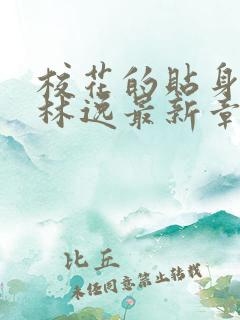 校花的贴身
林逸最新章
比丘
未经同意禁止转载